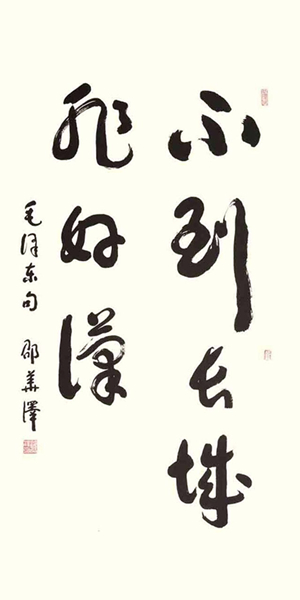 不到长城
非好汉
毛泽东句 邵华泽